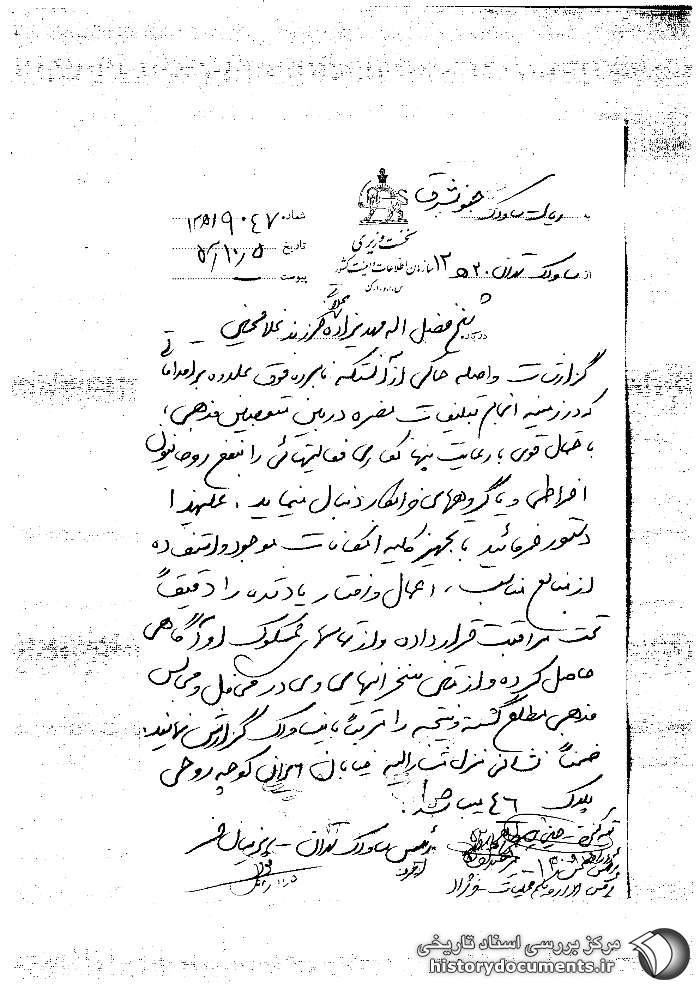 به ریاست ساواک جنوبشرق
شماره ۱۲ه۱۹۰۴۷
نخست وزیری
تاریخ ۵۲/۱۰/۵
از ساواک تهران ۵۳۰ ۱۲
سازمان اطلاعات و امنیت کشور
پیوست
س.ا.و.ا.ک
درباره شیخ فضل اله مهدیزاده محلاتی فرزند غلامحسین
گزارشات واصله حاکی از آنستکه نامبرده فوق علاوه بر اقداماتی
که در زمینه انجام تبلیغات مضره در بین متعصبین مذهبی،
با احتمال قوی با رعایت پنهانکاری فعالیتهائی را بنفع روحانیون
افراطی و یا گروههای خرابکار دنبال مینماید، علیهذا
دستور فرمائید با تجهیز کلیه امکانات موجود و استفاده
از منابع مناسب، اعمال و رفتار یاد شده را دقیقاً
تحت مراقبت قرار داده و از تماسهای مشکوک او آگاهی
حاصل کرده و از متن سخنرانیهای وی در محافل و مجالس
مذهبی مطلع گشته و نتیجه را مرتباً باین ساواک گزارش نمایند.
ضمناً نشانی منزل مشارالیه خیابان ایران کوچه روحی
پلاک ۴۶ میباشد.
رئیس ساواک تهران - پرنیان فر
مرکز بررسی اسناد تاریخی
historydocuments.ir